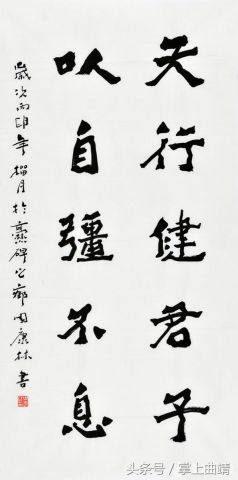 天行健君子
以自彊不息
歲次丙申年榴月於爨碑之鄉周康林書
头条号 / 掌上曲靖